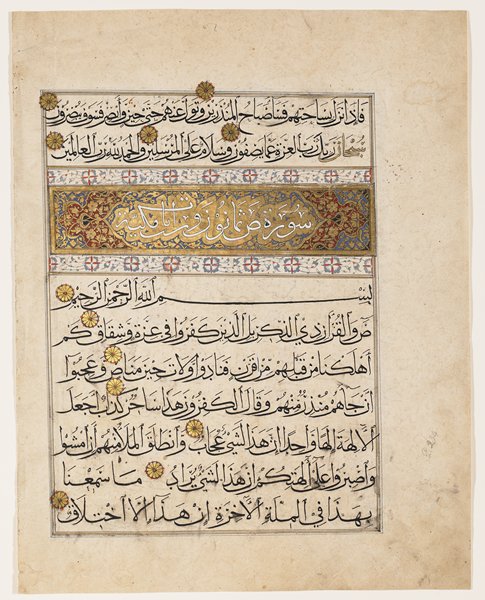 فاذا نزل بساحتهم فساء صباح المنذرين وتول عنهم حتى حين وابصر فسوف يبصرون
سبحان ربك رب العزة عما يصفون وسلام على المرسلين والحمد لله رب العالمين
سورة ص ثمانون مكية
بسم الله الرحمن الرحيم
ص والقرآن ذي الذكر بل الذين كفروا في عزة وشقاق كم
اهلكنا من قبلهم من قرن فنادوا ولات حين مناص وعجبوا
ان جاءهم منذر منهم وقال الكفرون هذا ساحر كذاب اجعل
الآلهة الها واحدا ان هذا لشيء عجاب وانطلق الملأ منهم ان امشوا
واصبروا على آلهتكم ان هذا لشيء يراد ما سمعنا
بهذا في الملة الآخرة ان هذا الا اختلاق